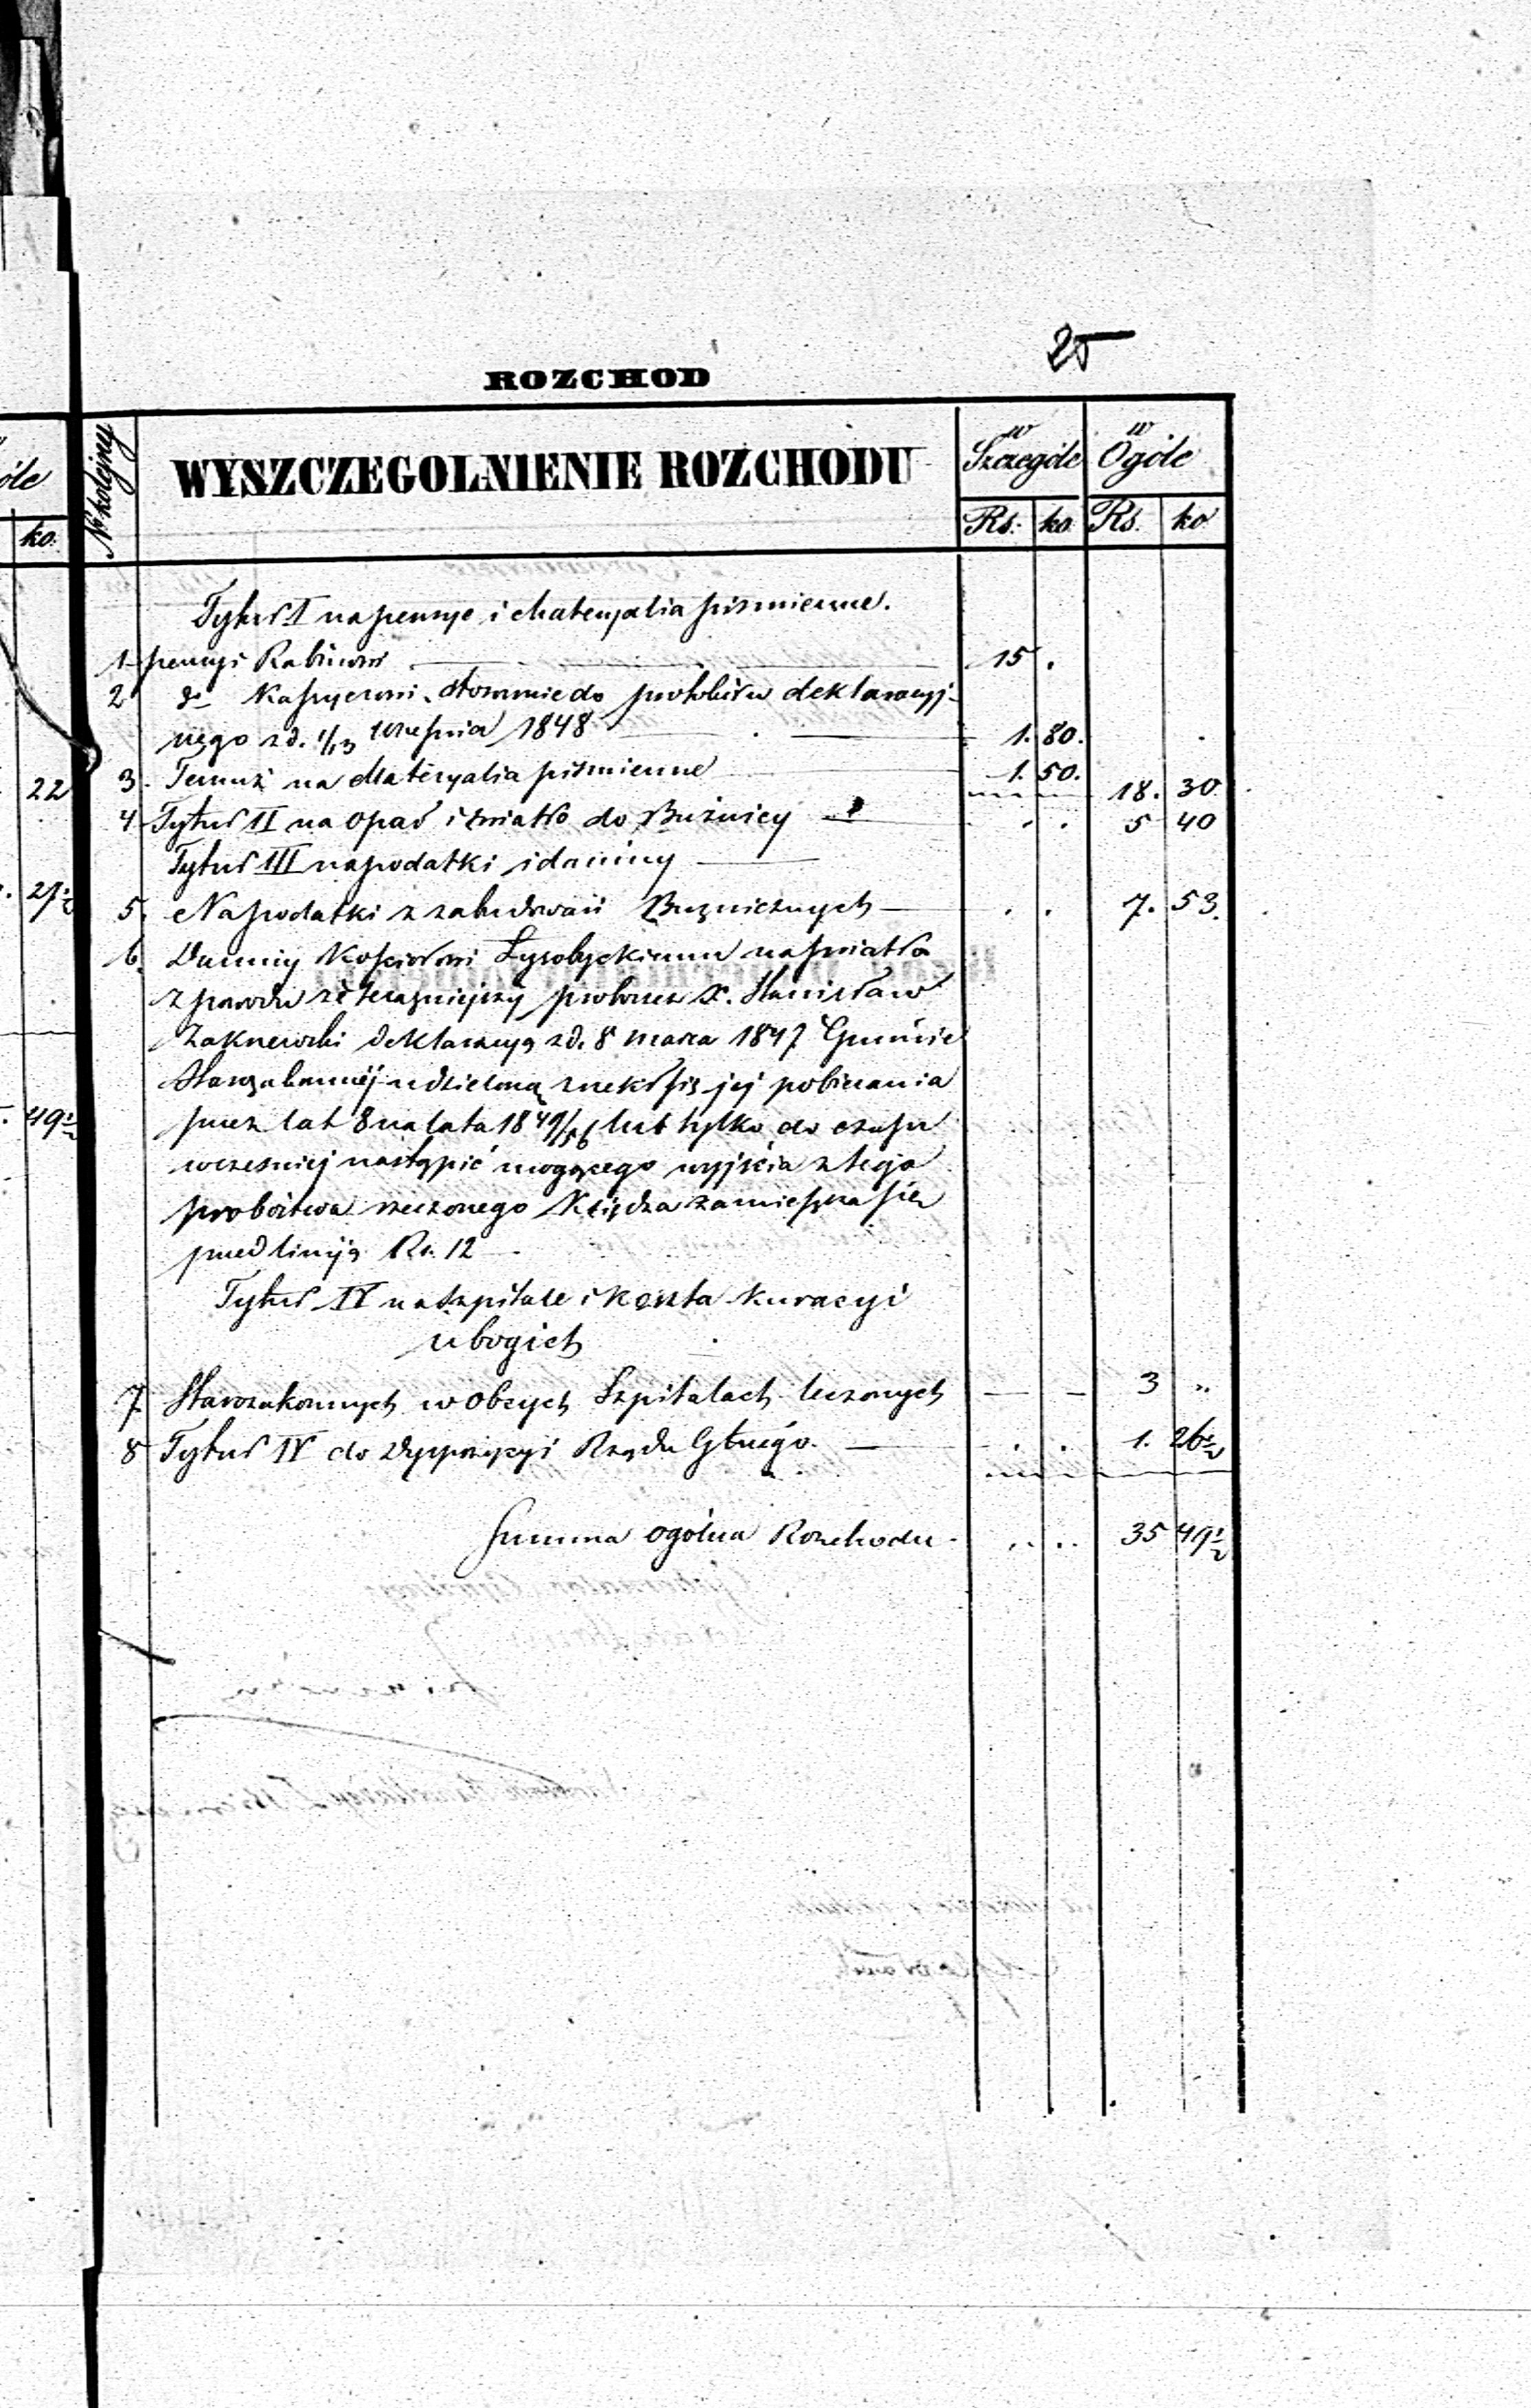 25
ROZCHOD
óle
ko.
N. kolejny
WYSZCZEGOLNIENIE ROZCHODU
w Szczególe
w Ogóle
Rs. ko Rs. ko
Tytuł I na pensye i Materyalia piśmienne.
1 pensyi Rabinowi 15 .
2 do Kassyerowi stosownie do protokółu deklaracyj-
nego z d. 1/13 Września 1848 1. 80.
22
3. Temuż na Materyalia piśmienne 1. 50. 18. 30
4 Tytuł II na opał i światło do Bużnicy . . 5 40
Tytuł III na podatki i daniny
5. Na podatki z zabudowań Bużnicznych . . 7. 53.
6. Daniny Kościołowi Łysobyckiemu na światło
z powodu że teraźniejszy proboszcz X. Stanisław
deklaracyą z d. 8 marca 1847 Gminie
49 1/2
Starozakonnéj udzieloną zrzekł się jéj pobierania
przez lat 8 na lata 1849/56 lub tylko do czasu
wcześniej nastąpić mogącego wyjścia z tego
probostwa rzeczonego Księdza zamieszcza się
przed liniją Rs. 12
Tytuł IV na Szpitale i koszta kuracyi
ubogich
7. Starozakonnych w obcych Szpitalach leczonych — — 3 „
8 Tytuł IV do Dyspozycyi Rządu Głnégo. . . 1. 26 1/2
Summa ogólna Rozchodu . . . . 35 49 1/2